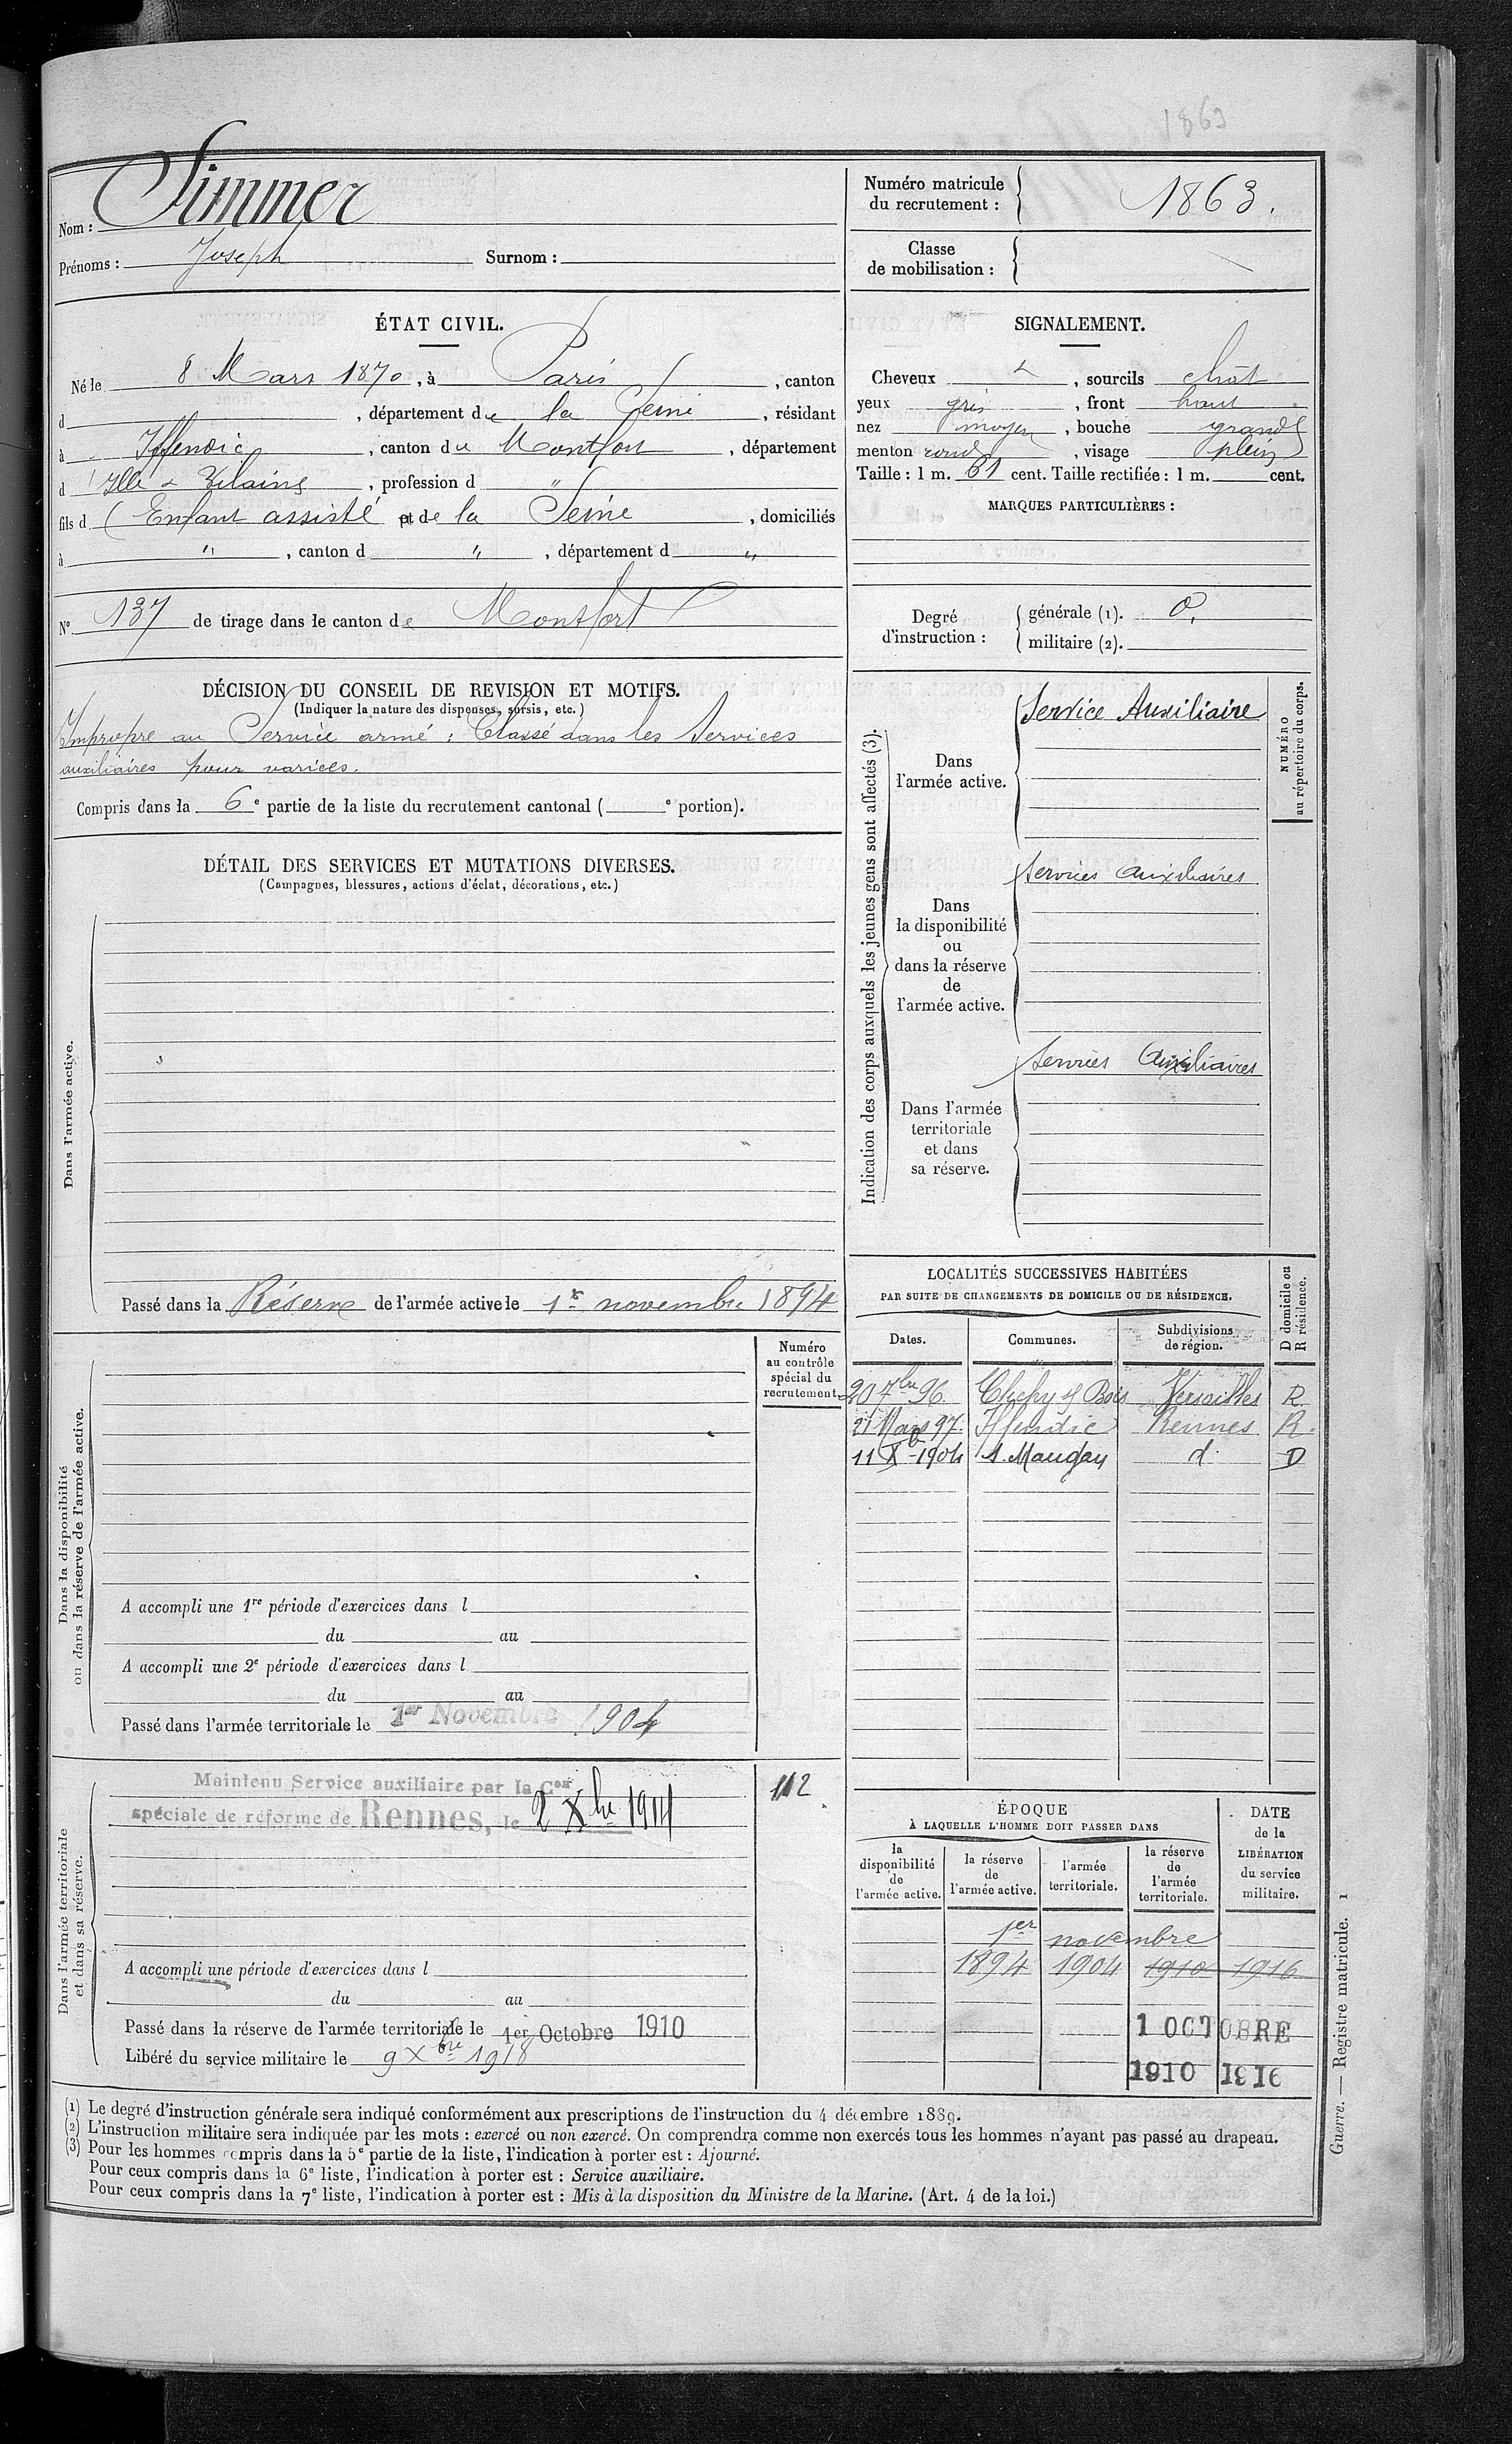 1863
Nom : Simmer
Prénoms : Joseph Surnom :
Numéro matricule du recrutement : 1863.
Classe de mobilisation :
ÉTAT CIVIL.
Né le 8 Mars 1870, à Paris, canton
d , département de la Seine, résidant
à Iffendic, canton du Montfort, département
d'Ille & Vilaine, profession d "
fils d (Enfant assisté et de la Seine, domiciliés
à " , canton d " , département d "
N° 137 de tirage dans le canton de Montfort
SIGNALEMENT.
Cheveux , sourcils chât
yeux gris, front haut
nez moyen, bouche grande
menton rond, visage plein
Taille : 1 m. 61 cent. Taille rectifiée : 1 m. cent.
MARQUES PARTICULIÈRES :
Degré d'instruction : générale (1). 0.
militaire (2).
DÉCISION DU CONSEIL DE REVISION ET MOTIFS.
(Indiquer la nature des dispenses, sursis, etc.)
Impropre au Service armé ; Classé dans les Services
auxiliaires pour varices.
Compris dans la 6e partie de la liste du recrutement cantonal ( e portion).
DÉTAIL DES SERVICES ET MUTATIONS DIVERSES.
(Campagnes, blessures, actions d'éclat, décorations, etc.)
Dans l'armée active.
Passé dans la Réserve de l'armée active le 1er novembre 1894
Indication des corps auxquels les jeunes gens sont affectés (3).
NUMÉRO au répertoire du corps.
Dans l'armée active.
Service Auxiliaire
Dans la disponibilité ou dans la réserve de l'armée active.
Services Auxiliaires
Dans l'armée territoriale et dans sa réserve.
Services Auxiliaires
Dans la disponibilité ou dans la réserve de l'armée active.
Numéro au contrôle spécial du recrutement.
A accompli une 1re période d'exercices dans l
du au
A accompli une 2e période d'exercices dans l
du au
Passé dans l'armée territoriale le 1er Novembre 1904
LOCALITÉS SUCCESSIVES HABITÉES
PAR SUITE DE CHANGEMENTS DE DOMICILE OU DE RÉSIDENCE.
D domicile ou R résidence.
Dates. Communes. Subdivisions de région.
20 7bre 96. Clichy s/ Bois Versailles R.
21 Mars 97. Iffendic Rennes R.
11 X-1904 St. Maugan d° D
Dans l'armée territoriale et dans sa réserve.
Maintenu Service auxiliaire par la Con
spéciale de réforme de Rennes, le 2 Xbre 1914
112
A accompli une période d'exercices dans l
du au
Passé dans la réserve de l'armée territoriale le 1er Octobre 1910
Libéré du service militaire le 9 Xbre 1918
ÉPOQUE
À LAQUELLE L'HOMME DOIT PASSER DANS
la disponibilité de l'armée active.
la réserve de l'armée active.
l'armée territoriale.
la réserve de l'armée territoriale.
DATE de la LIBÉRATION du service militaire.
1er novembre
1894 1904 1910 1916
1 OCTOBRE
1910 1916
(1) Le degré d'instruction générale sera indiqué conformément aux prescriptions de l'instruction du 4 décembre 1889.
(2) L'instruction militaire sera indiquée par les mots : exercé ou non exercé. On comprendra comme non exercés tous les hommes n'ayant pas passé au drapeau.
(3) Pour les hommes compris dans la 5e partie de la liste, l'indication à porter est : Ajourné.
Pour ceux compris dans la 6e liste, l'indication à porter est : Service auxiliaire.
Pour ceux compris dans la 7e liste, l'indication à porter est : Mis à la disposition du Ministre de la Marine. (Art. 4 de la loi.)
Guerre. — Registre matricule. 1